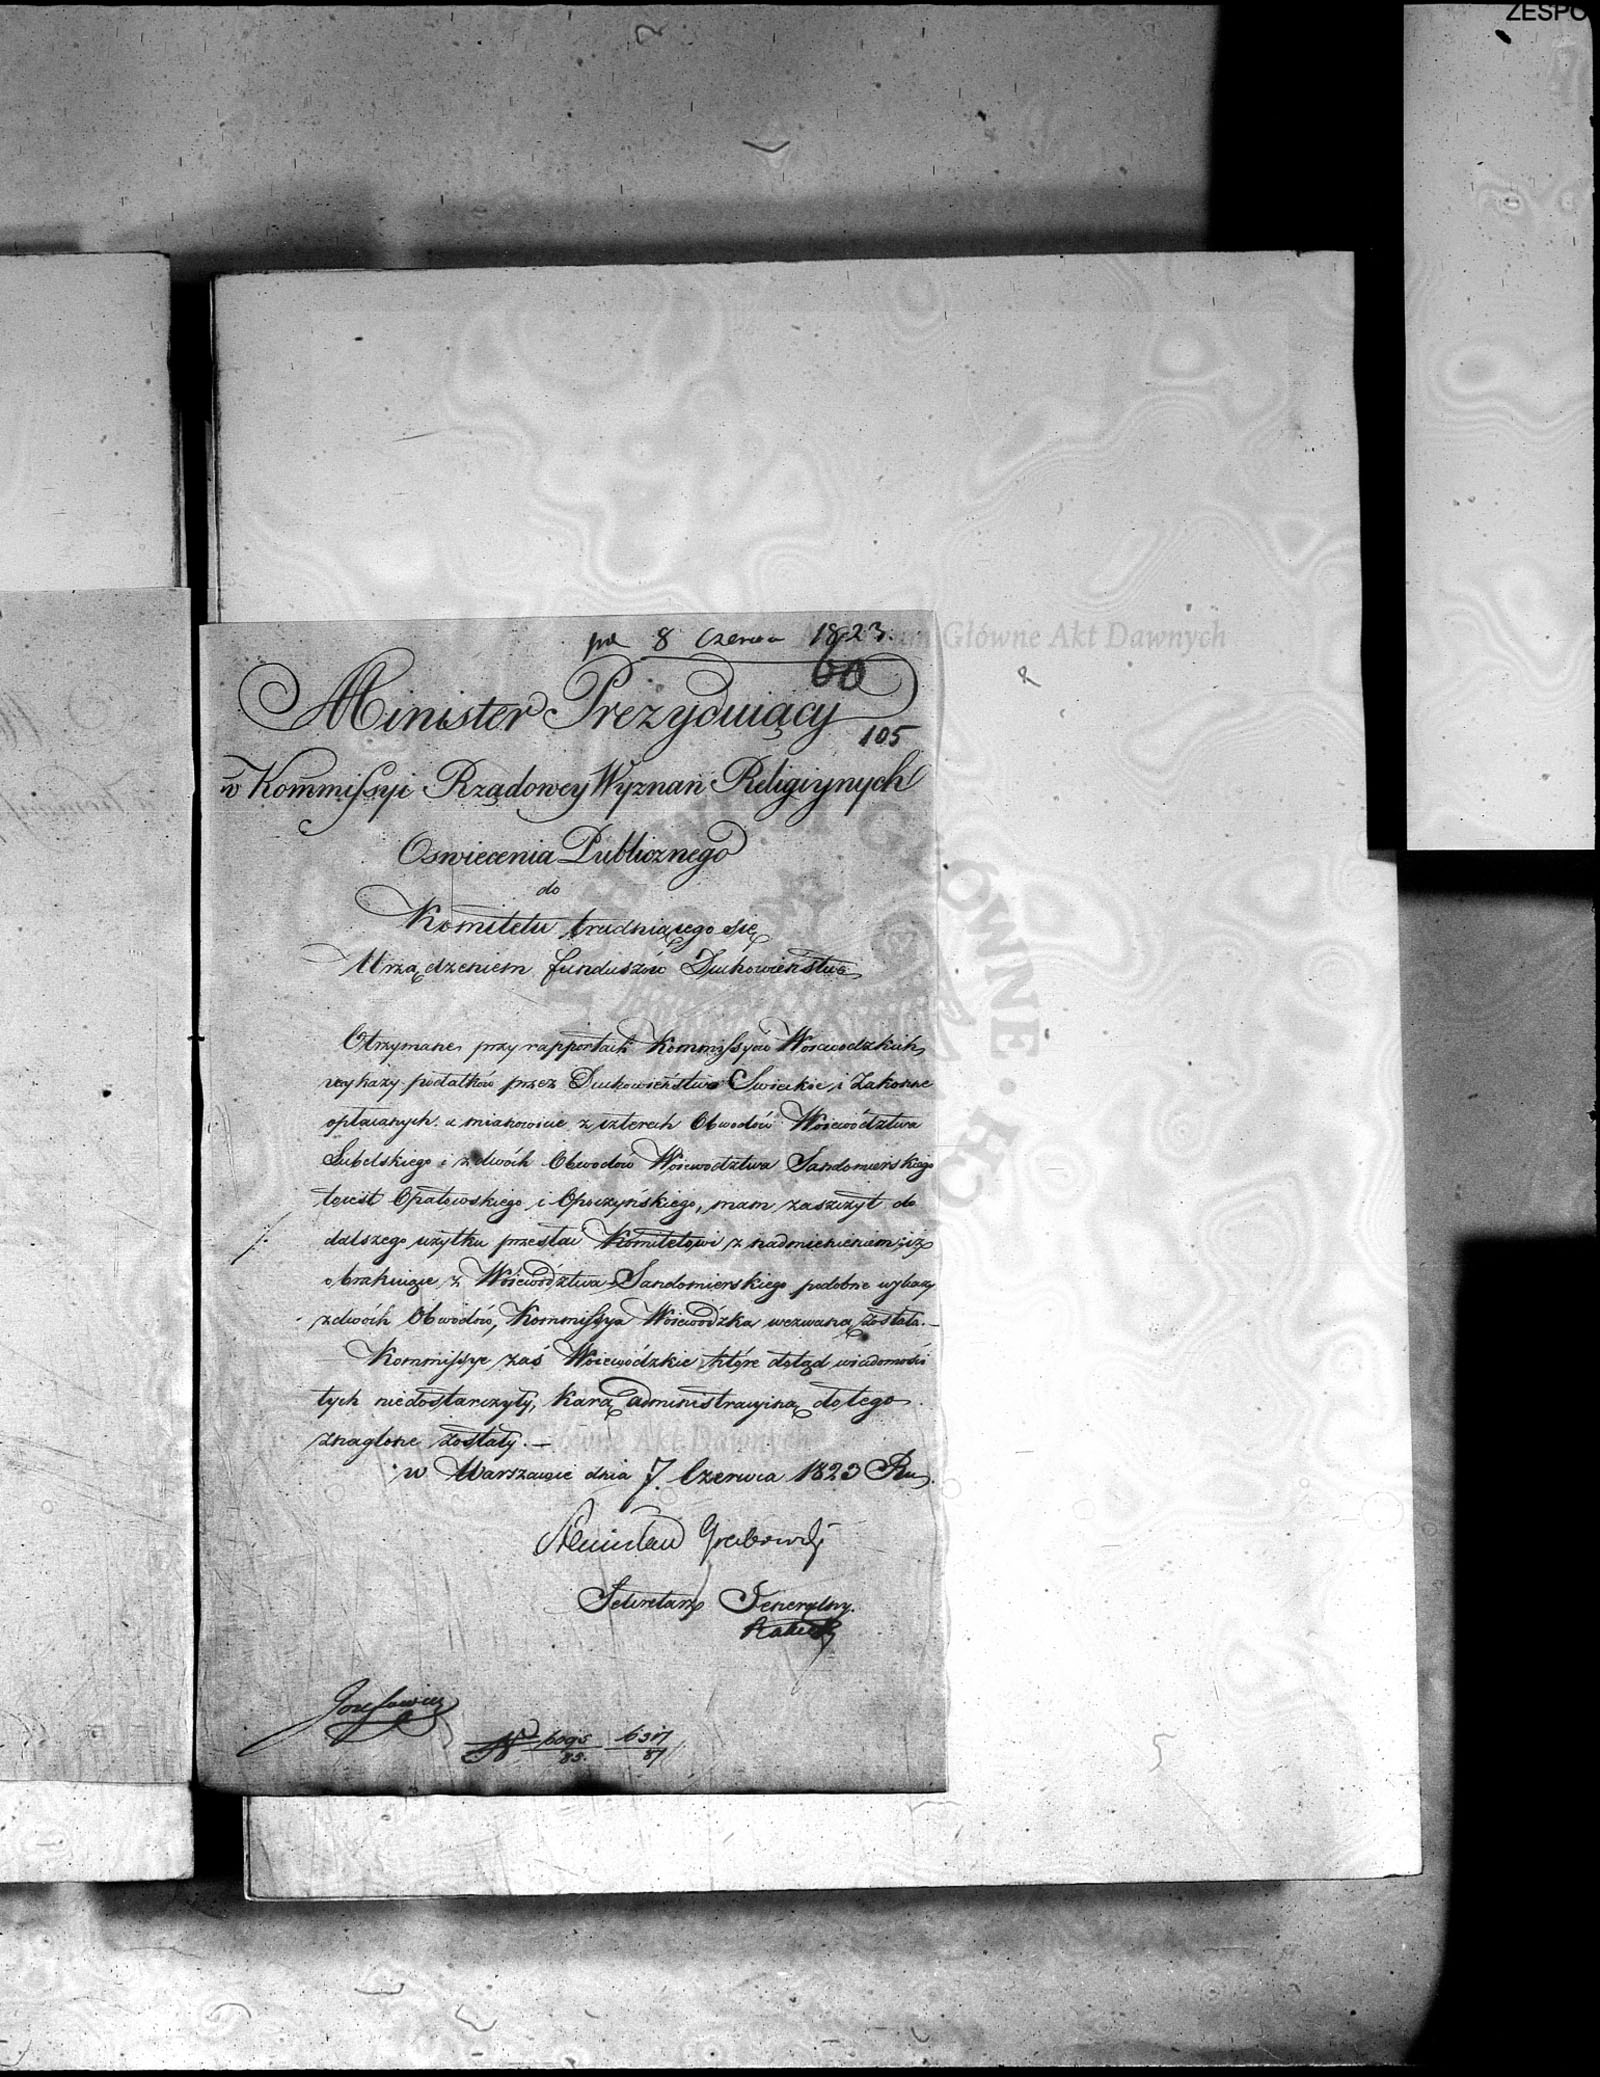 ZESPO
pd 8 Czerwca 1823.
60
Minister Prezyduiący
105
w Kommissyi Rządowey Wyznań Religiynych
Oswiecenia Publicznego
do
Komitetu trudniącego się
Urządzeniem funduszów Duchowieństwa
Otrzymane przy rapportach Kommissyów Woiewodzkich
wykazy podatków przez Duchowieństwo Swieckie i Zakonne
opłacanych a mianowicie z czterech Obwodów Woiewództwa
Lubelskiego i z dwóch Obwodów Woiewodztwa Sandomierskiego
toiest Opatowskiego i Opoczyńskiego, mam zaszczyt do
dalszego użytku przesłać Komitetowi z nadmienieniem iż
o brakuiące z Woiewództwa Sandomierskiego podobne wykazy
z dwóch Obwodów, Kommissya Woiewódzka wezwaną została. —
Kommissye zaś Woiewódzkie które dotąd wiadomości
tych niedostarczyły, karą administracyiną do tego
znaglone zostały. —
w Warszawie dnia 7. Czerwca 1823 Ru.
Stanisław Grabowski
Sekretarz Generalny.
Jozefowicz
N 6095/85. 6317/87
Główne Akt Dawnych